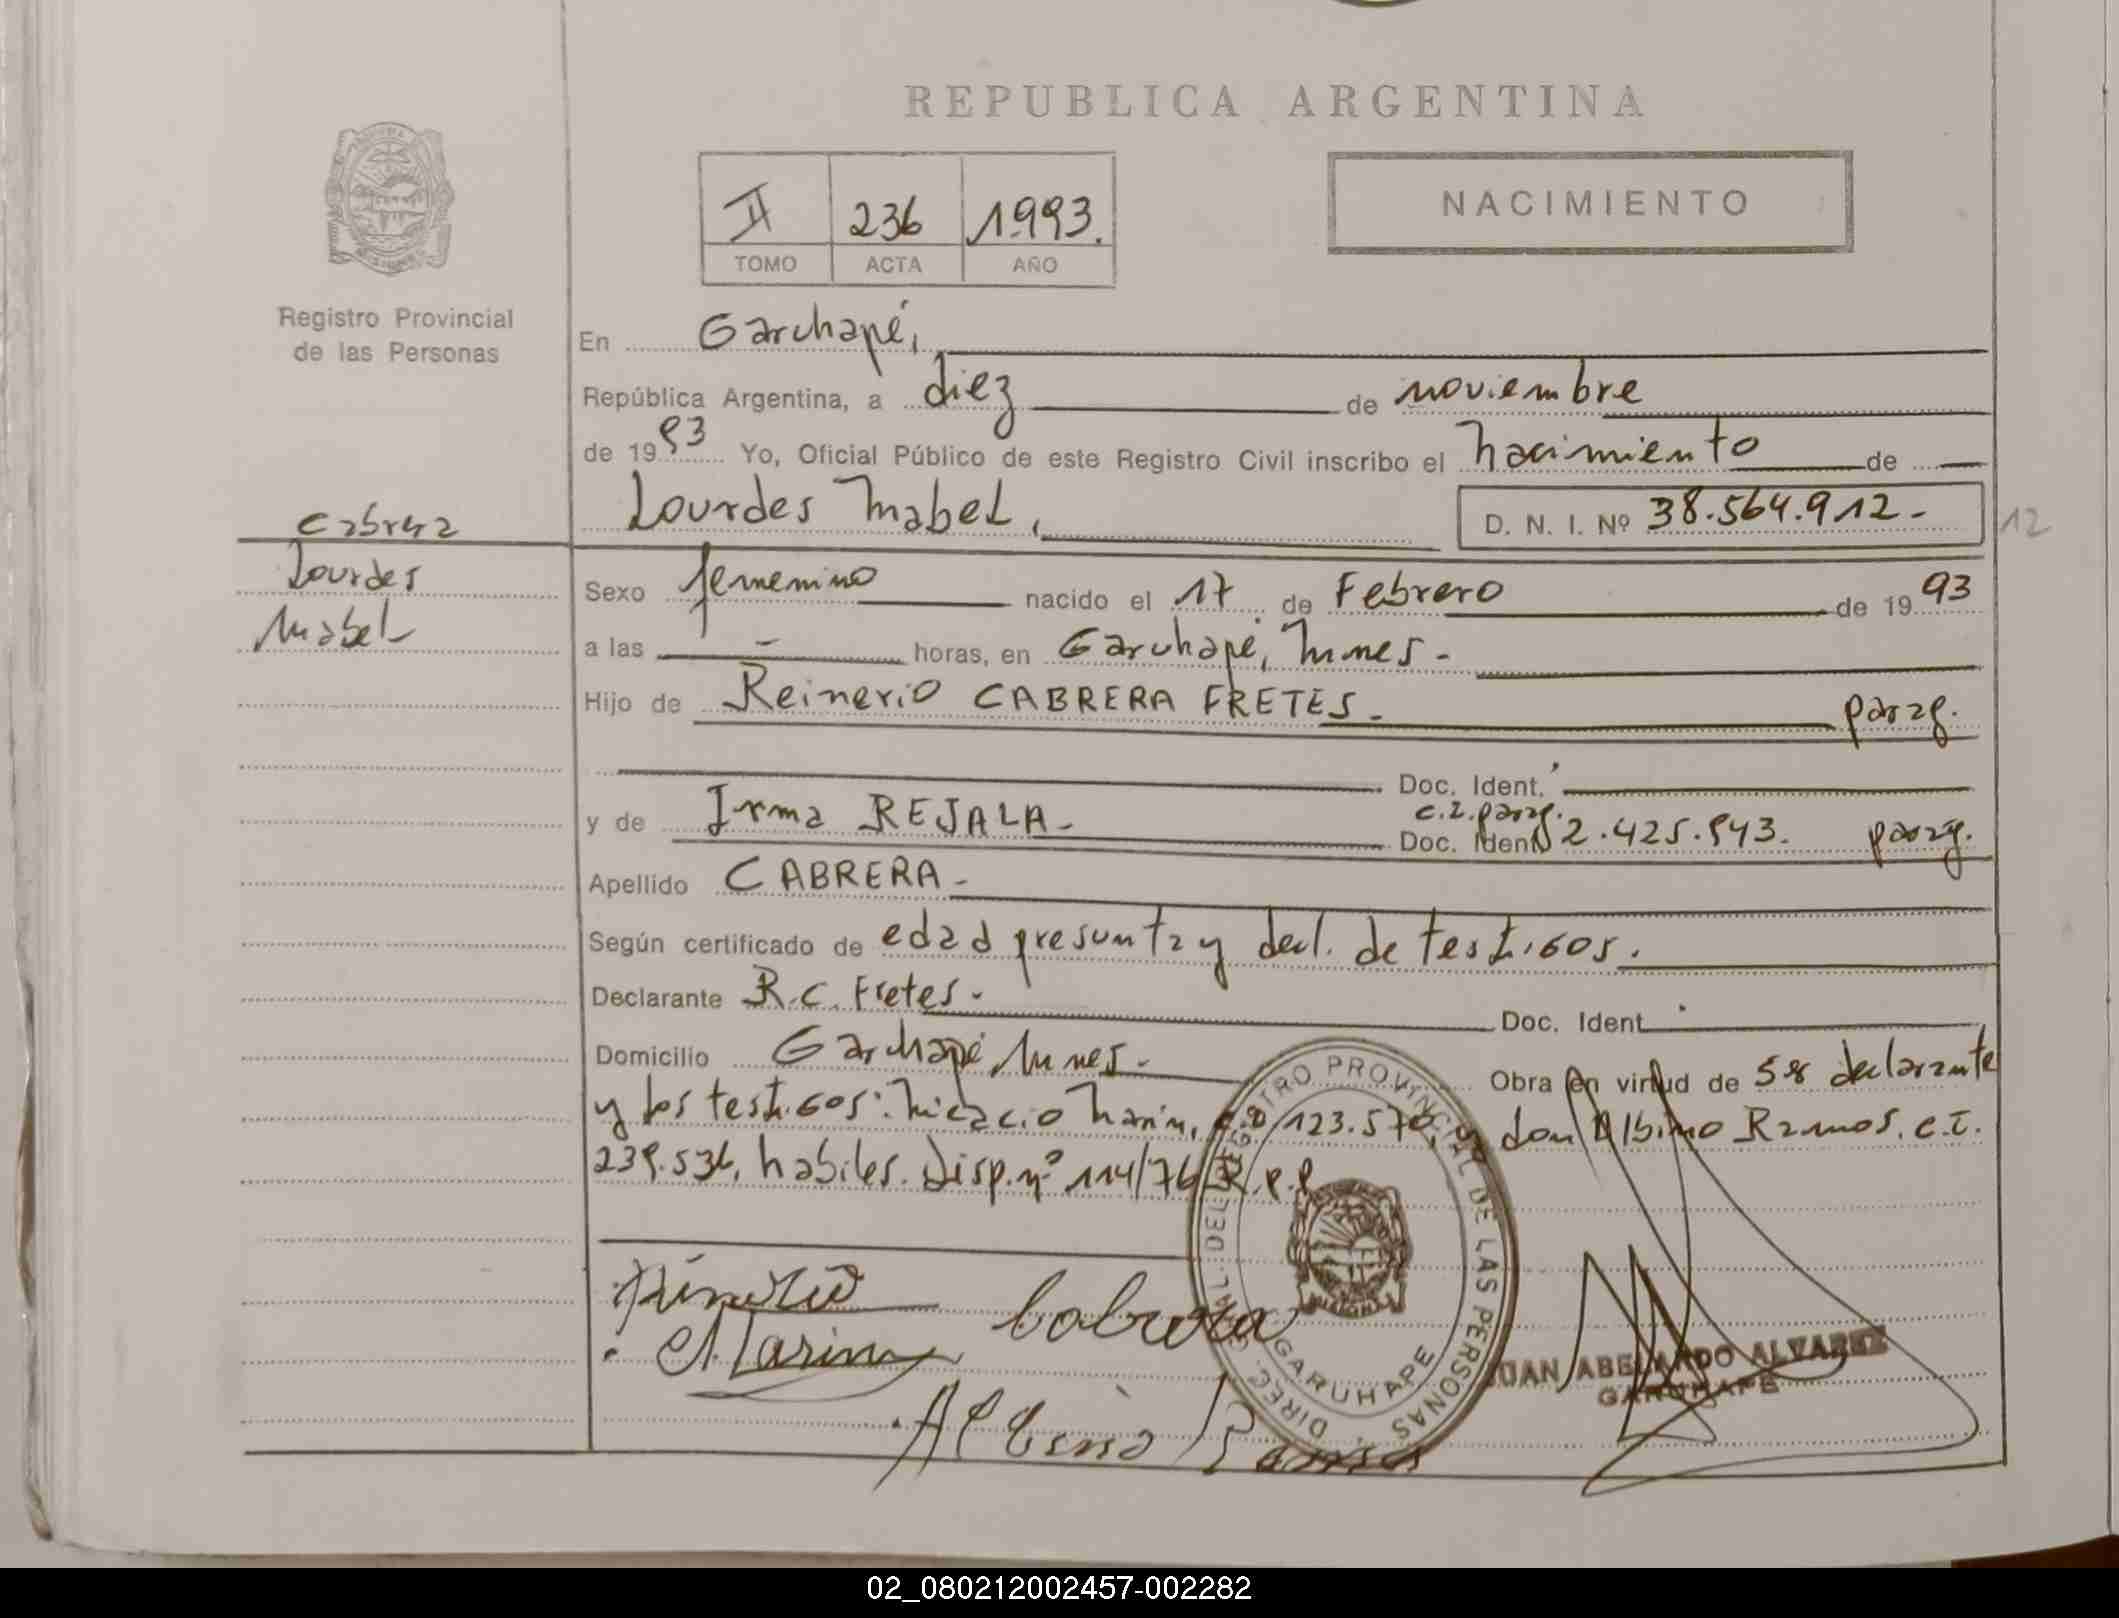 REPUBLICA ARGENTINA
II 236 1993.
TOMO ACTA AÑO
NACIMIENTO
Registro Provincial
de las Personas
En Garuhapé,
República Argentina, a diez de noviembre
de 1993 Yo, Oficial Público de este Registro Civil inscribo el nacimiento de
Lourdes Mabel, D. N. I. Nº 38.564.912-
12
Cabrera
Lourdes
Mabel
Sexo femenino nacido el 17 de Febrero de 1993
a las - horas, en Garuhapé, Mnes-
Hijo de Reinerio CABRERA FRETES- parag.
Doc. Ident.
y de Irma REJALA- c.i. parag. Doc. Ident Nº 2.425.943. parag.
Apellido CABRERA-
Según certificado de edad presunta y decl. de testigos.
Declarante R.C. Fretes- Doc. Ident.
Domicilio Garuhapé, Mnes- Obra en virtud de ser declarante
y los testigos: Marin, 123.570, y don Albino Ramos. c.I.
239.536, habiles. Disp. nº 114/76 R.p.p
Cabrera
Marin
Albino Ramos
DIREC. GRAL. DEL REGISTRO PROVINCIAL DE LAS PERSONAS
GARUHAPE
JUAN ABELARDO ALVAREZ
GARUHAPE
02_080212002457-002282